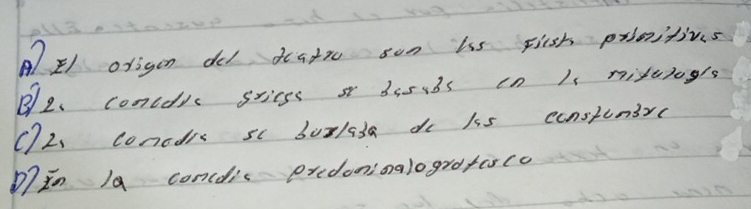 A) El origen del teatro son las fiests primitivas
B) La comedia griega se basaba en la mitología
C) La comedia se burlaba de las constumbre
D) En la comedia predomina lo grotesco